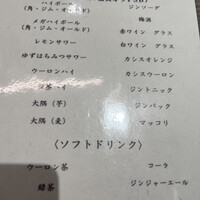 ハイボール
(角・ジム・オールド)
メガハイボール
(角・ジム・オールド)
レモンサワー
ゆずはちみつサワー
ウーロンハイ
大隅(芋)
大隅(麦)
ジンソーダ
梅酒
赤ワイン グラス
白ワイン グラス
カシスオレンジ
カシスウーロン
ジントニック
ジンバック
マッコリ
〈ソフトドリンク〉
ウーロン茶
コーラ
緑茶
ジンジャーエール